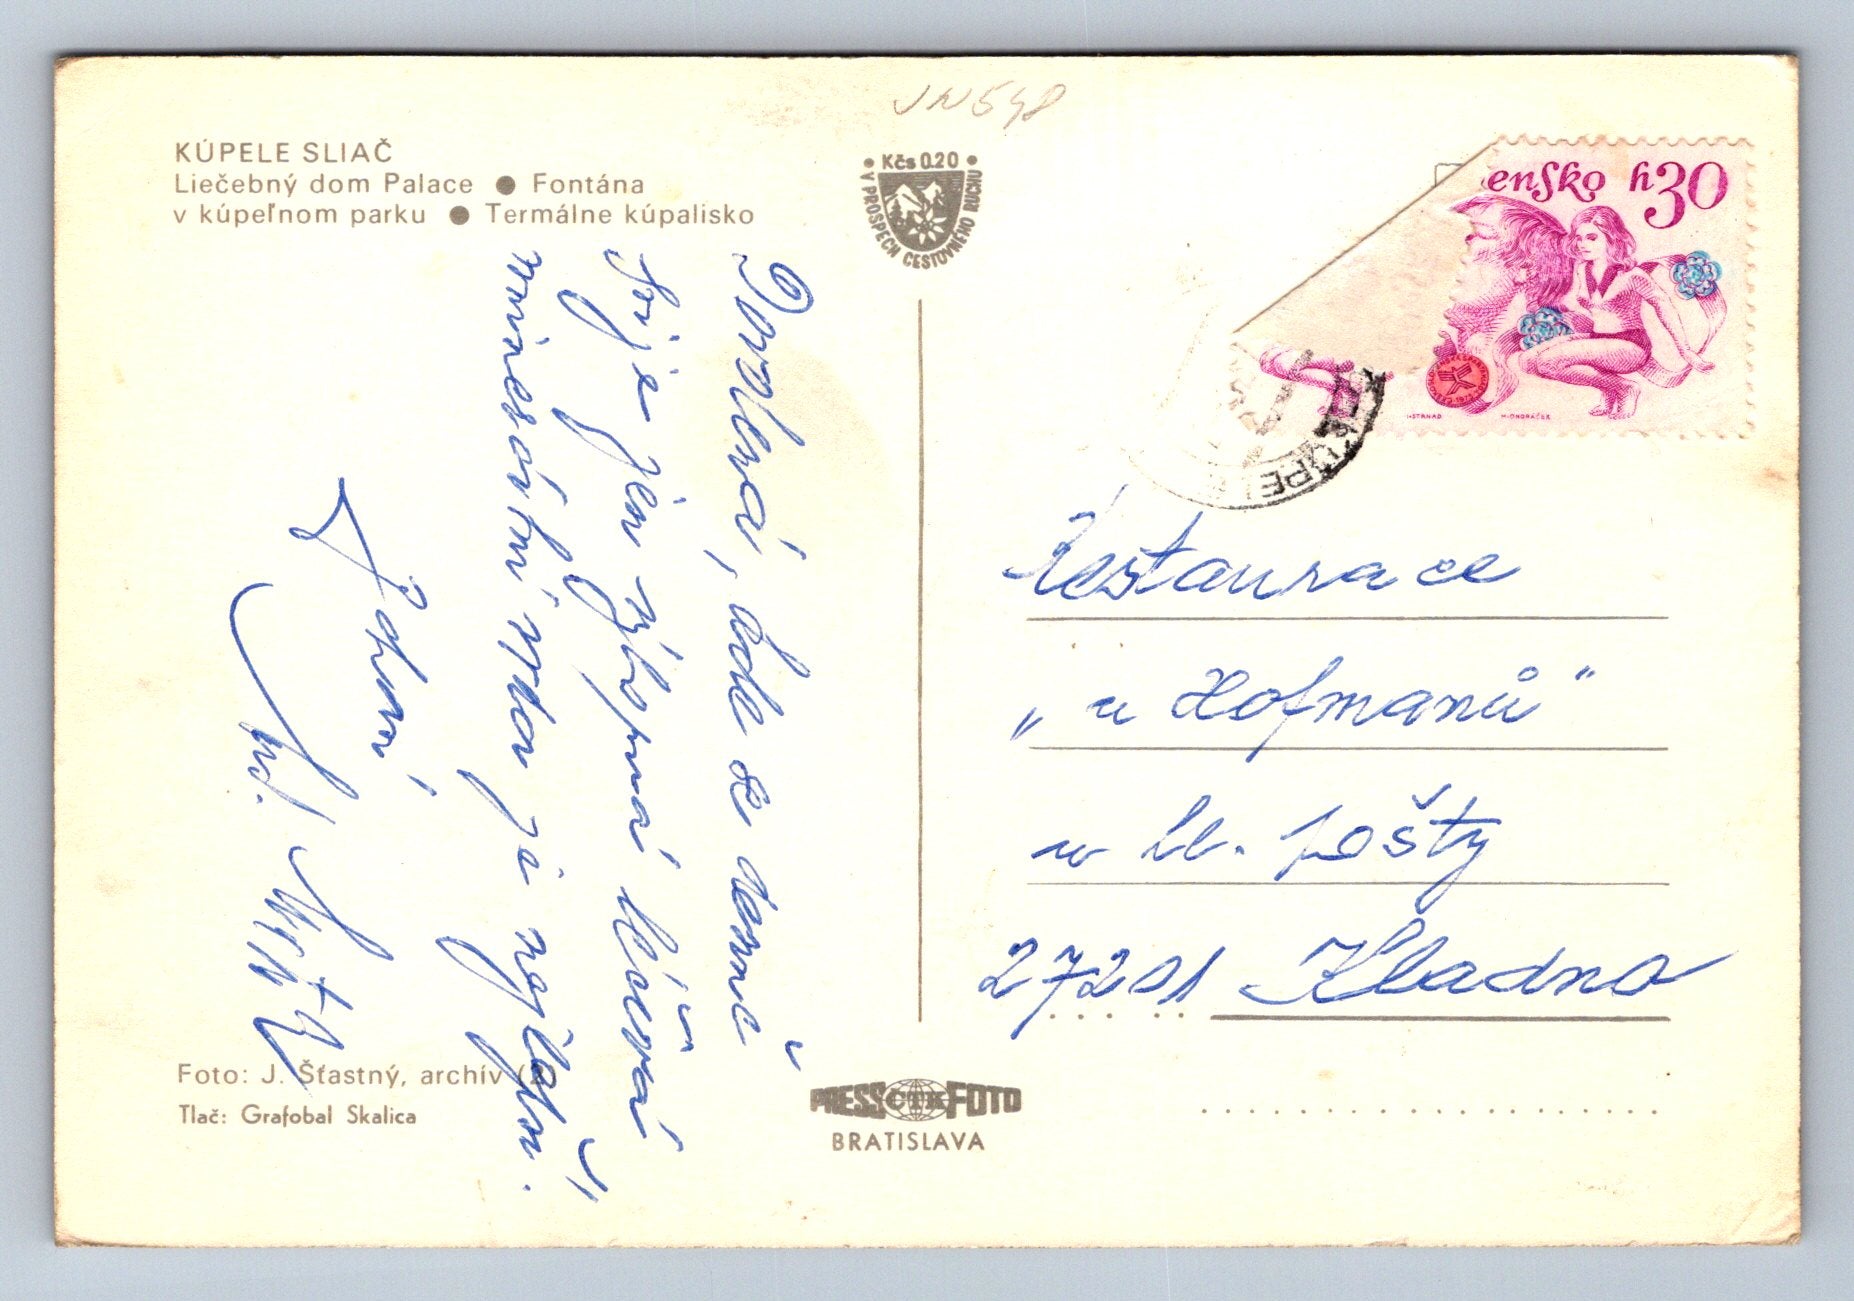 JN548
KÚPELE SLIAČ
Liečebný dom Palace ● Fontána
v kúpeľnom parku ● Termálne kúpalisko
• Kčs 0.20 •
V PROSPECH CESTOVNÉHO RUCHU
ensko h30
I. STRNAD
M. ONDRÁČEK
KÚPELE
zde se
je jen výborná
minerální voda je nejlepší.
Zdraví
Restaurace
„u Hofmanů"
u hl. pošty
27201 Kladno
Foto: J. Šťastný, archív (2)
Tlač: Grafobal Skalica
PRESS ČTK FOTO
BRATISLAVA